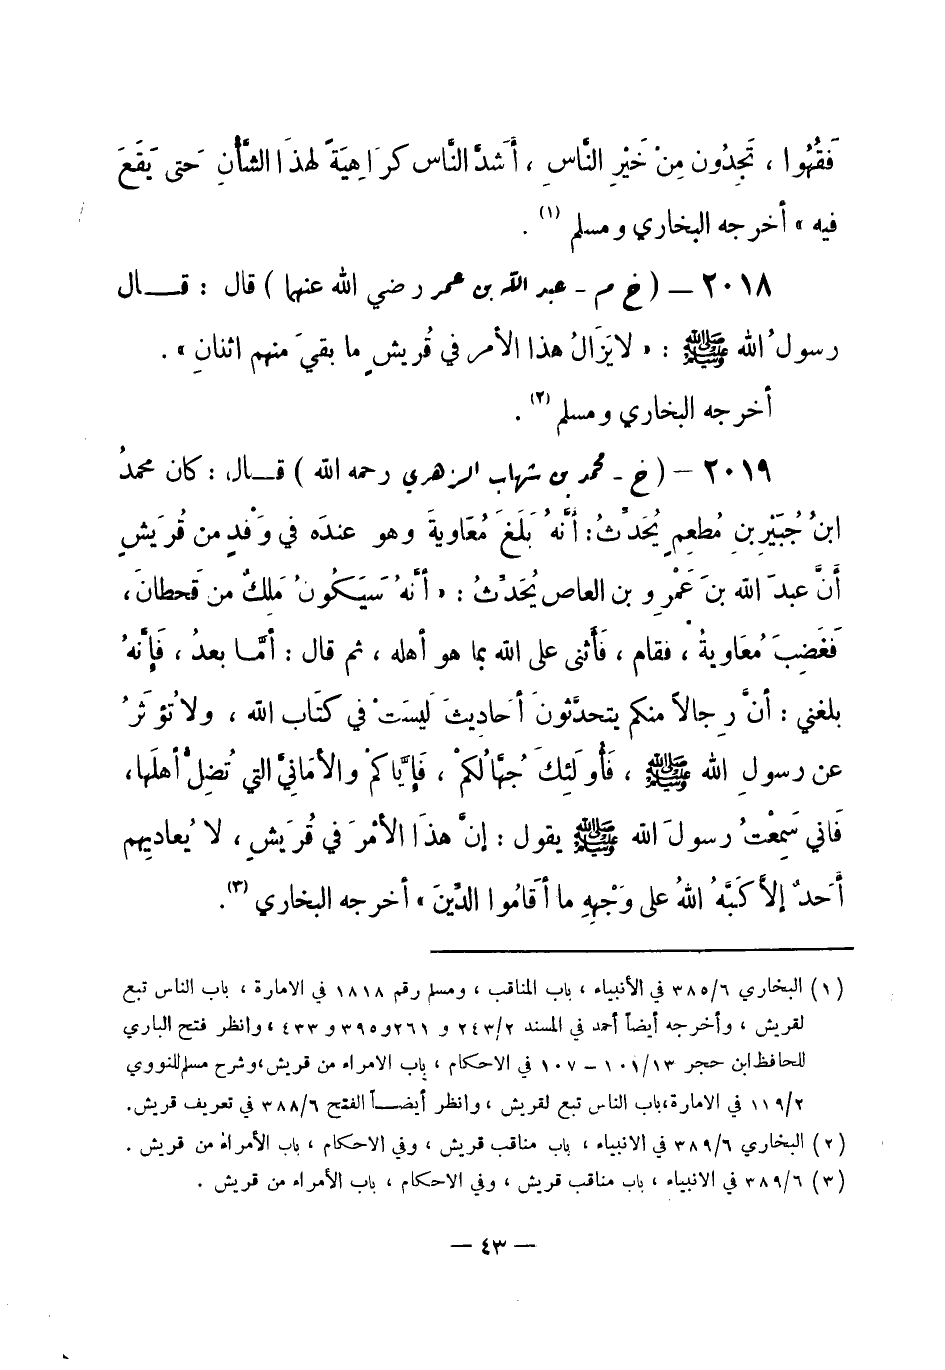 فَقُهُوا ، تَجِدُون مِنْ خَيْرِ النَّاسِ ، أَشدَّ النَّاس كرَاهِيَةً لهذَا الشَّأْنِ حَتى يَقَعَ
فيه » أخرجه البخاري ومسلم (١) .
٢٠١٨ – ( خ م - عبد الله بن عمر رضي الله عنهما ) قال : قـــال
رسولُ الله ﷺ : « لا يَزَالُ هذا الأمر في قُريشٍ ما بقيَ منهم اثنانِ » .
أخرجه البخاري ومسلم (٢) .
٢٠١٩ – ( خ - محمد بن شهاب الزهري رحمه الله ) قـــال : كان محمدُ
ابنُ جُبَيْرِ بنِ مُطعِمٍ يُحَدِّثُ : أنَّهُ بَلَغَ مُعَاويةَ وهو عندَه في وَفْدٍ من قُرَيشٍ
أنَّ عبدَ الله بنَ عَمْرِو بن العاص يُحَدِّثُ : « أنَّهُ سَيَكُونُ مَلِكٌ من قَحطانَ ،
فَغَضِبَ مُعَاويةُ ، فقام ، فَأَثنى على الله بما هو أهله ، ثم قال : أمَّـا بعدُ ، فَإِنَّهُ
بلغني : أنَّ رِجالاً منكم يتحدَّثونَ أحَاديثَ لَيسَتْ في كتَاب الله ، ولا تُؤثَرُ
عن رسولِ الله ﷺ ، فَأُولَئِكَ جُهَّالُكمْ ، فَإِيَّاكمْ والأمَانيَّ التي تُضِلُّ أهلَها ،
فَاني سَمِعْتُ رسولَ الله ﷺ يقول : إنَّ هذَا الأمْرَ في قُرَيشٍ ، لا يُعاديهم
أَحَدٌ إلاَّ كَبَّهُ اللهُ على وَجْهِهِ ما أقَامُوا الدِّينَ » أخرجه البخاري (٣) .
(١) البخاري ٣٨٥/٦ في الأنبياء ، باب المناقب ، ومسلم رقم ١٨١٨ في الامارة ، باب الناس تبع
لقريش ، وأخرجه أيضاً أحمد في المسند ٢٤٣/٢ و ٢٦١ و٣٩٥ و ٤٣٣ ، وانظر فتح الباري
للحافظ ابن حجر ١٠١/١٣ – ١٠٧ في الاحكام ، باب الامراء من قريش ، وشرح مسلم للنووي
١١٩/٢ في الامارة ، باب الناس تبع لقريش ، وانظر أيضـــاً الفتح ٣٨٨/٦ في تعريف قريش .
(٢) البخاري ٣٨٩/٦ في الانبياء ، باب مناقب قريش ، وفي الاحكام ، باب الأمراء من قريش .
(٣) ٣٨٩/٦ في الانبياء ، باب مناقب قريش ، وفي الاحكام ، باب الأمراء من قريش .
— ٤٣ —